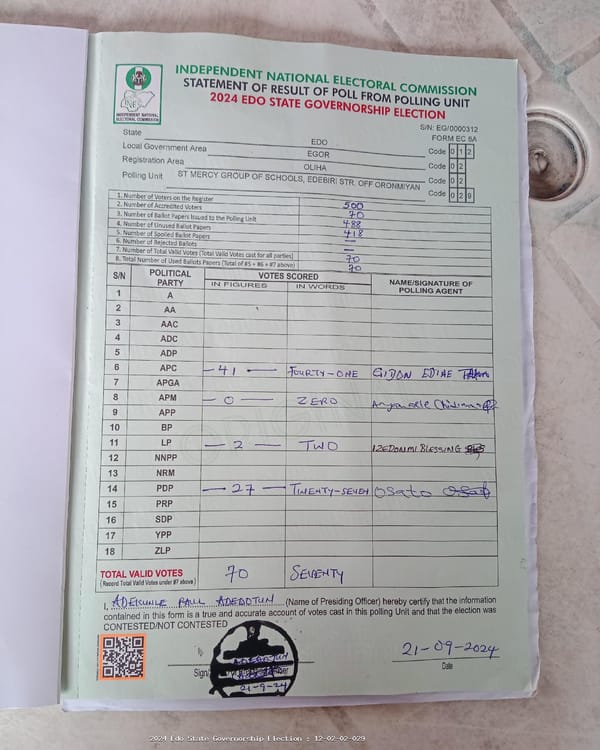 INDEPENDENT NATIONAL ELECTORAL COMMISSION
STATEMENT OF RESULT OF POLL FROM POLLING UNIT
2024 EDO STATE GOVERNORSHIP ELECTION
INEC
INDEPENDENT NATIONAL ELECTORAL COMMISSION
S/N: EG/0000312
FORM EC 8A
State EDO Code 0 1 2
Local Government Area EGOR Code 0 2
Registration Area OLIHA Code 0 2
Polling Unit ST MERCY GROUP OF SCHOOLS, EDEBIRI STR. OFF ORONMIYAN Code 0 2 9
1. Number of Voters on the Register 500
2. Number of Accredited Voters 70
3. Number of Ballot Papers Issued to the Polling Unit 488
4. Number of Unused Ballot Papers 418
5. Number of Spoiled Ballot Papers —
6. Number of Rejected Ballots —
7. Number of Total Valid Votes (Total Valid Votes cast for all parties) 70
8. Total Number of Used Ballots Papers (Total of #5 + #6 + #7 above) 70
S/N POLITICAL PARTY VOTES SCORED NAME/SIGNATURE OF POLLING AGENT
IN FIGURES IN WORDS
1 A
2 AA
3 AAC
4 ADC
5 ADP
6 APC —41— FOURTY-ONE GIDON EDIHE
7 APGA
8 APM —0— ZERO
9 APP
10 BP
11 LP —2— TWO IZEDONMI BLESSING
12 NNPP
13 NRM
14 PDP —27— TWENTY-SEVEN Osato
15 PRP
16 SDP
17 YPP
18 ZLP
TOTAL VALID VOTES 70 SEVENTY
(Record Total Valid Votes under #7 above)
I, ADEKUNLE PAUL ADEDOTUN (Name of Presiding Officer) hereby certify that the information
contained in this form is a true and accurate account of votes cast in this polling Unit and that the election was
CONTESTED/NOT CONTESTED
ADEDOTUN
21-9-24
21-09-2024
Date
2024 Edo State Governorship Election : 12-02-02-029